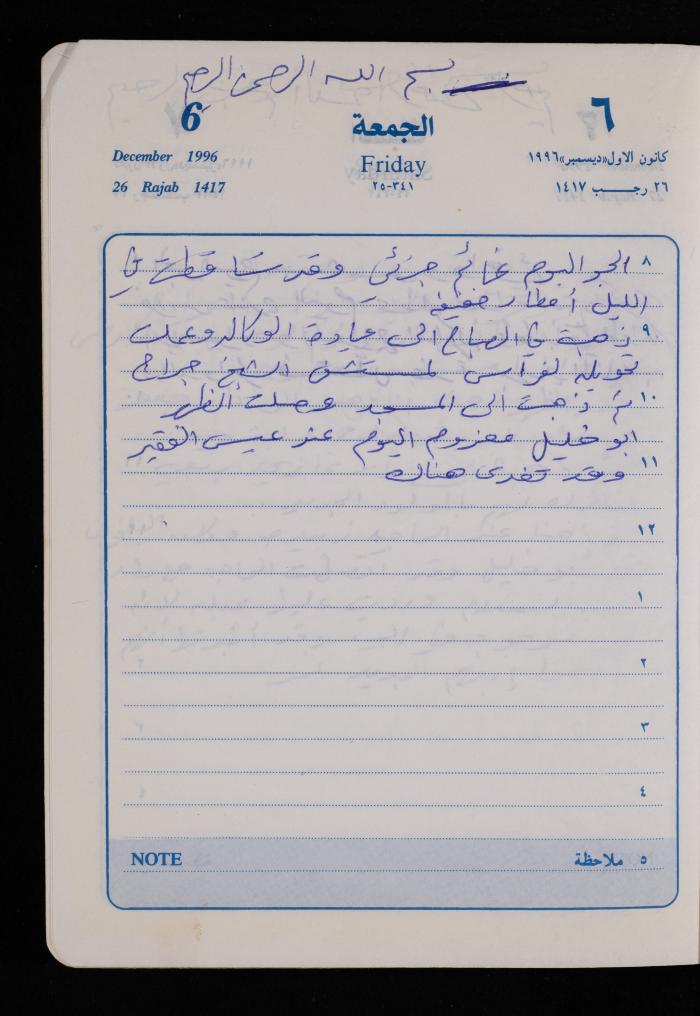 بسم الله الرحمن الرحيم
6
الجمعة
٦
December 1996
Friday
كانون الاول «ديسمبر» ١٩٩٦
26 Rajab 1417
٣٤١-٢٥
٢٦ رجب ١٤١٧
٨ الجو اليوم غائم جزئي وقد سقطت في
الليل أمطار خفيفة
٩ ذهبت في الصباح الى عيادة الوكاله وعملت
تحويله لفراس لمستشفى الشيخ جراح
١٠ ثم ذهبت الى المسجد وصليت الظهر
ابو خليل معزوم اليوم عند عيسى الفقير
١١ وقد تغدى هناك
١٢
١
٢
٣
٤
NOTE
٥ ملاحظة